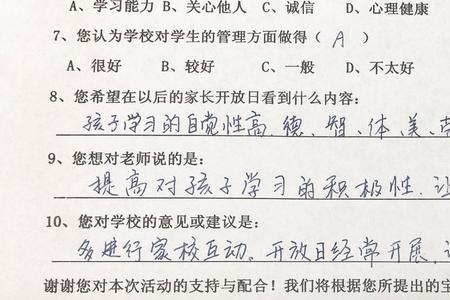 A、学习能力 B、关心他人 C、诚信 D、心理健康
7、您认为学校对学生的管理方面做得（ A ）
A、很好 B、较好 C、一般 D、不太好
8、您希望在以后的家长开放日看到什么内容：
孩子学习的自觉性高、德、智、体、美、劳
9、您想对老师说的是：
提高对孩子学习的积极性、让
10、您对学校的意见或建议是：
多进行家校互动、开放日经常开展、
谢谢您对本次活动的支持与配合！我们将根据您所提出的宝